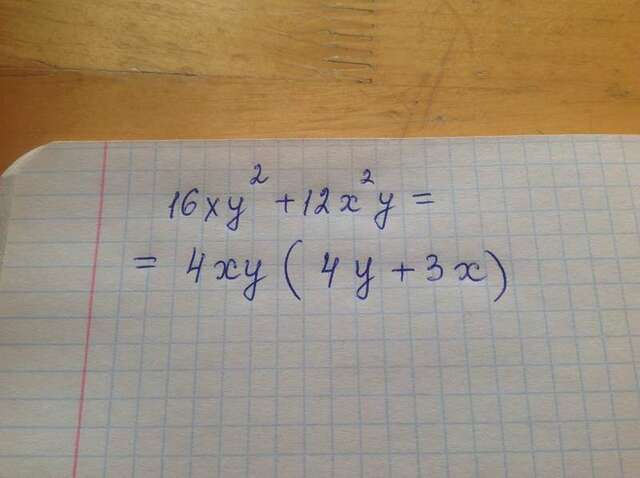 16xy² + 12x²y =
= 4xy ( 4y + 3x )